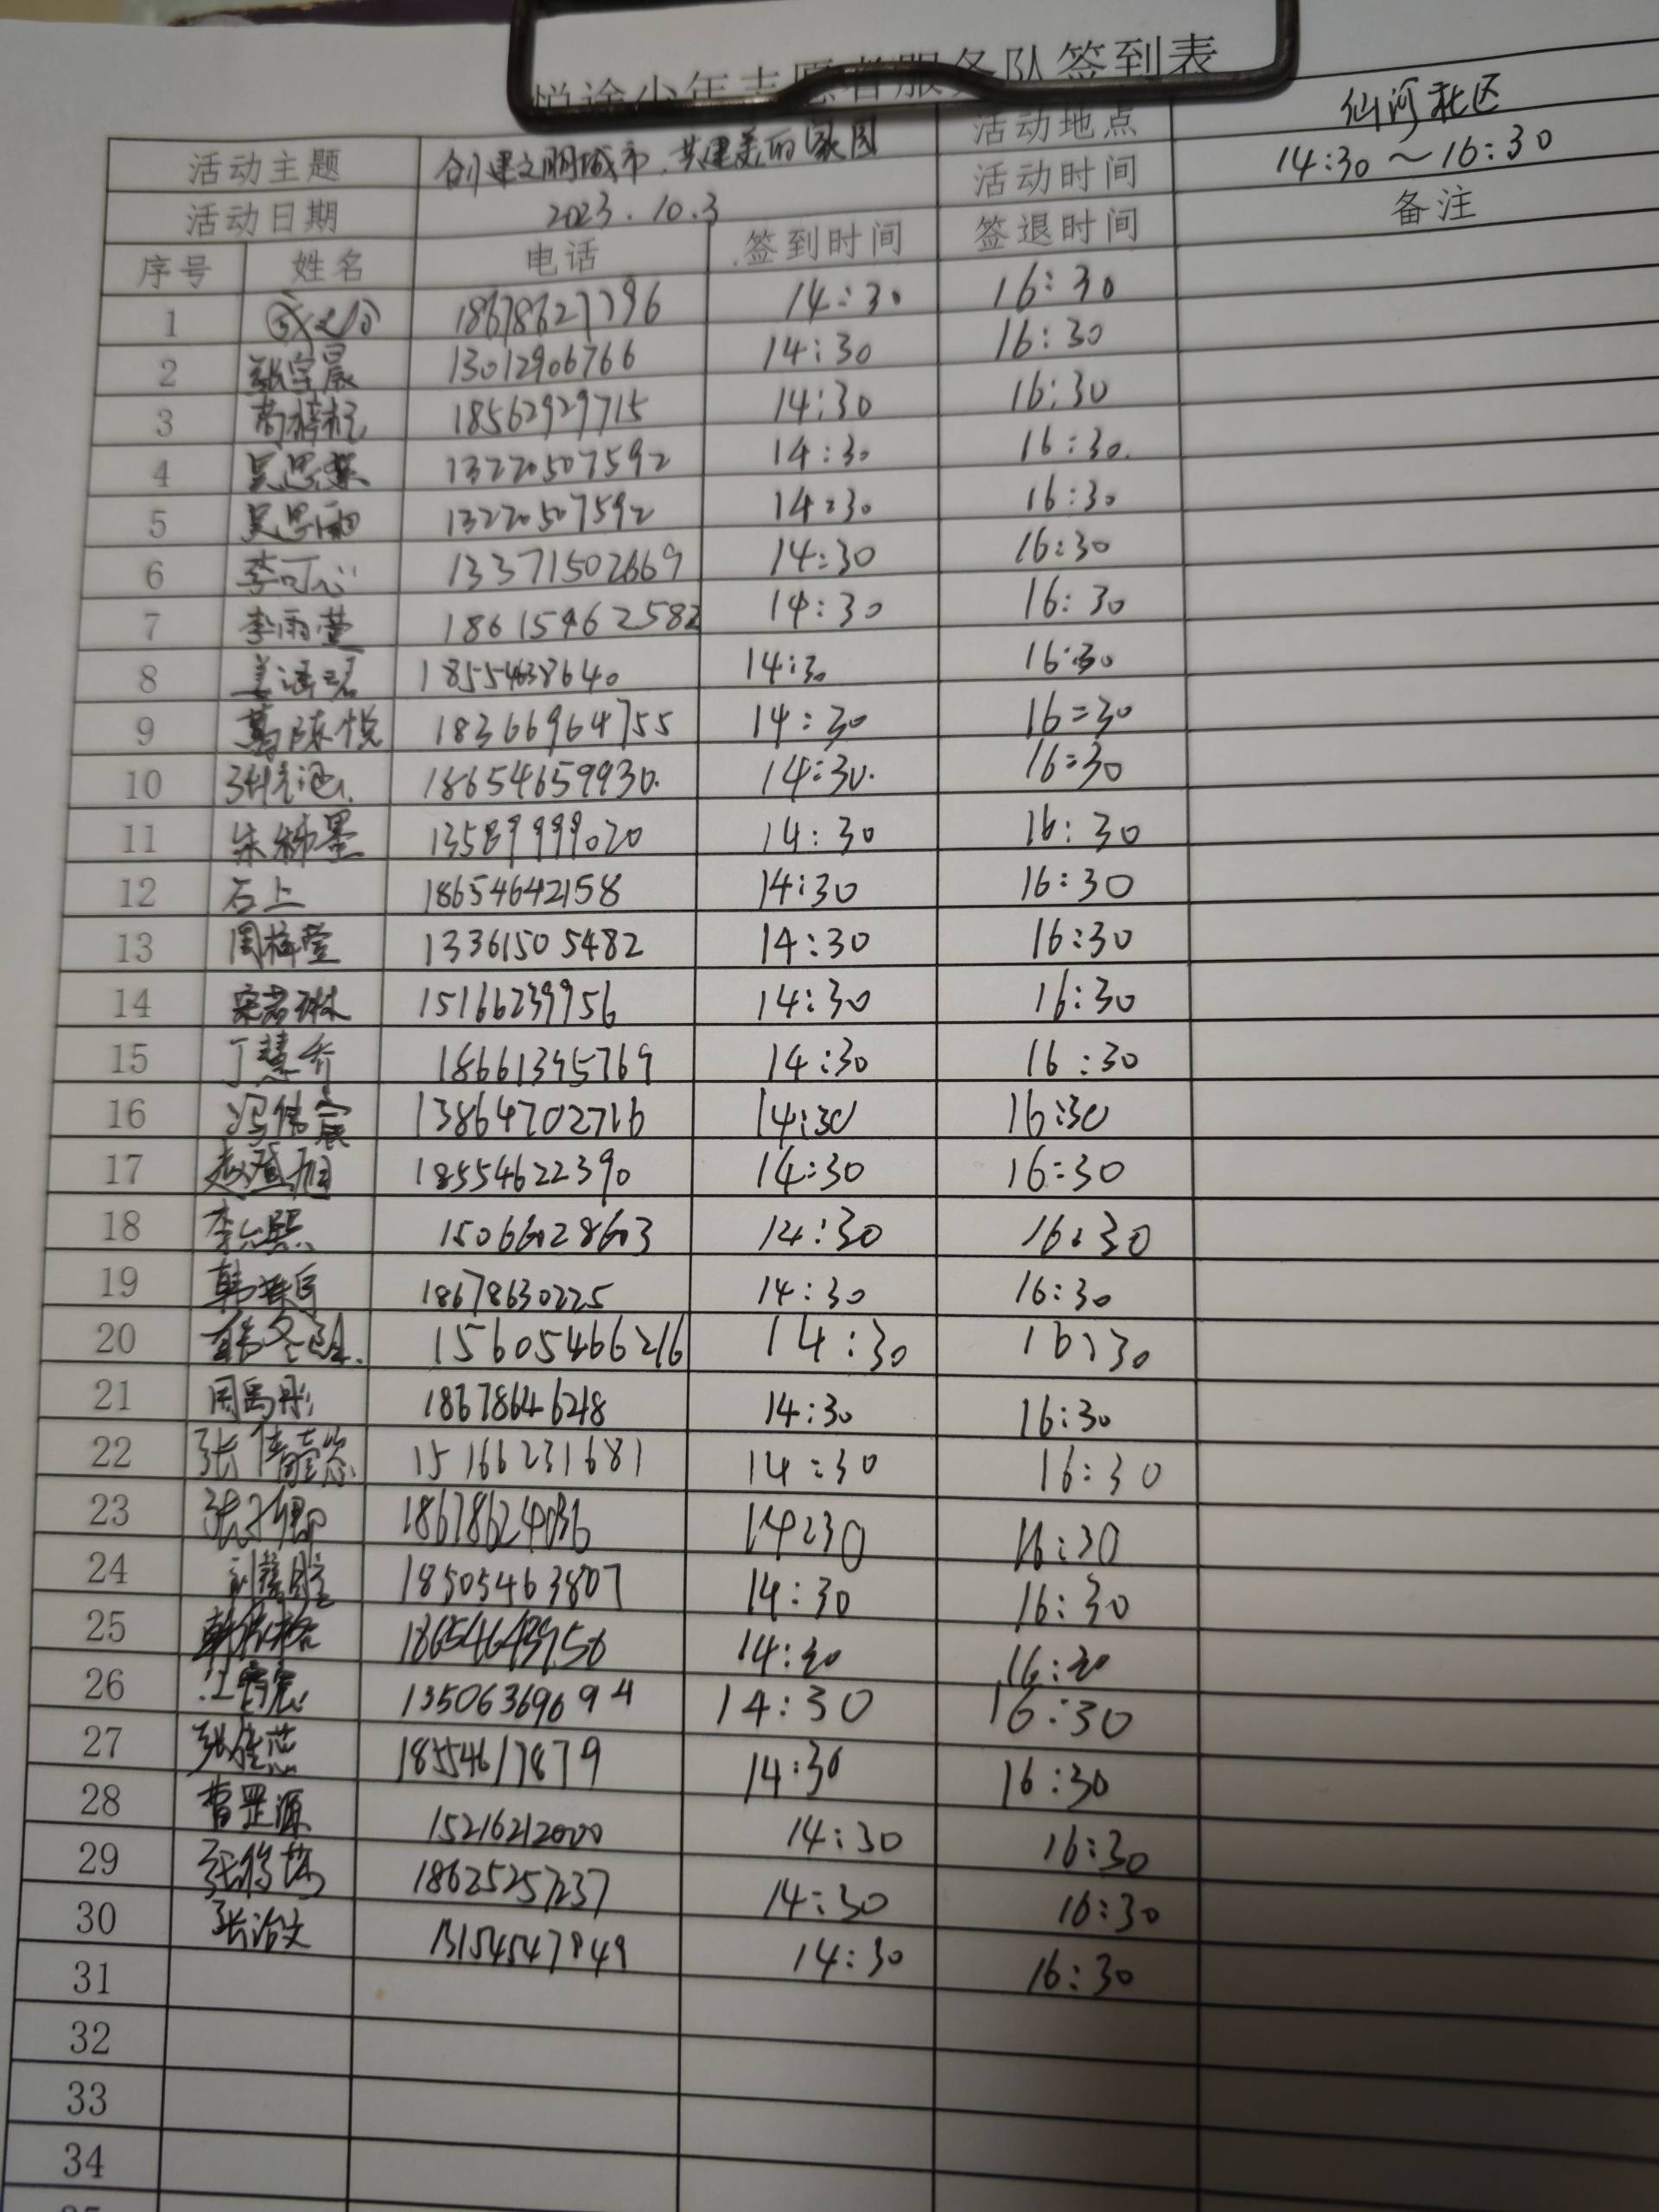 悦途少年志愿者服务队签到表
活动主题 创建文明城市、共建美的家园 活动地点 仙河社区
活动日期 2023.10.3 活动时间 14:30～16:30
序号 姓名 电话 签到时间 签退时间 备注
1 18678627796 14:30 16:30
2 张宇晨 13012906766 14:30 16:30
3 18562929715 14:30 16:30
4 吴思 13220507592 14:30 16:30.
5 吴思雨 13220507592 14:30 16:30
6 李可心 13371502669 14:30 16:30
7 李雨萱 18615462582 14:30 16:30
8 姜涵 18554638640 14:30 16:30
9 葛陈悦 18366964755 14:30 16:30
10 18654659930. 14:30. 16:30
11 朱梓墨 13589999020 14:30 16:30
12 石上 18654642158 14:30 16:30
13 周梓萱 13361505482 14:30 16:30
14 宋若琳 15166239956 14:30 16:30
15 丁慧 18661395769 14:30 16:30
16 冯伟宸 13864702716 14:30 16:30
17 赵 18554622390 14:30 16:30
18 李 15066028603 14:30 16:30
19 韩 18678630225 14:30 16:30
20 15605466216 14:30 16:30
21 周禹彤 18678646218 14:30 16:30
22 张倩 15166231681 14:30 16:30
23 张 18678624036 14:30 16:30
24 刘 18505463807 14:30 16:30
25 韩 18654643956 14:30 16:30
26 江 13506369694 14:30 16:30
27 张佳芯 18554617879 14:30 16:30
28 曹罡源 15216212000 14:30 16:30
29 张 18625257237 14:30 16:30
30 张洽文 13154547949 14:30 16:30
31
32
33
34